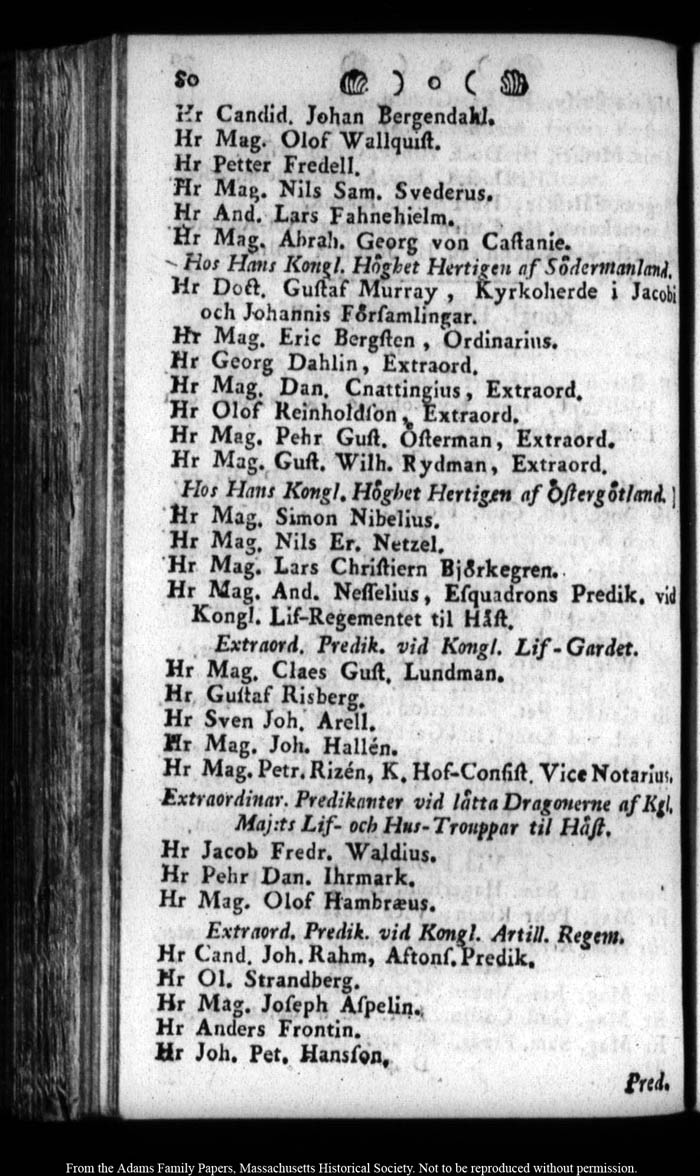 80 ) o (
Hr Candid. Johan Bergendahl.
Hr Mag. Olof Wallquiſt.
Hr Petter Fredell.
Hr Mag. Nils Sam. Svederus.
Hr And. Lars Fahnehielm.
Hr Mag. Abrah. Georg von Caſtanie.
Hos Hans Kongl. Hôghet Hertigen af Sôdermanland.
Hr Doƈt. Guſtaf Murray, Kyrkoherde i Jacobi
och Johannis Fôrſamlingar.
Hr Mag. Eric Bergſten, Ordinarius.
Hr Georg Dahlin, Extraord.
Hr Mag. Dan. Cnattingius, Extraord.
Hr Olof Reinholdſon, Extraord.
Hr Mag. Pehr Guſt. Ôſterman, Extraord.
Hr Mag. Guſt. Wilh. Rydman, Extraord.
Hos Hans Kongl. Hôghet Hertigen af Ôſtergôtland.
Hr Mag. Simon Nibelius.
Hr Mag. Nils Er. Netzel.
Hr Mag. Lars Chriſtiern Bjôrkegren.
Hr Mag. And. Neſſelius, Eſquadrons Predik. vid
Kongl. Lif-Regementet til Håſt.
Extraord. Predik. vid Kongl. Lif-Gardet.
Hr Mag. Claes Guſt. Lundman.
Hr Guſtaf Risberg.
Hr Sven Joh. Arell.
Hr Mag. Joh. Hallén.
Hr Mag. Petr. Rizén, K. Hof-Conſiſt. Vice Notarius.
Extraordinar. Predikanter vid låtta Dragonerne af Kgl.
Maj:ts Lif- och Hus-Trouppar til Håſt.
Hr Jacob Fredr. Waldius.
Hr Pehr Dan. Ihrmark.
Hr Mag. Olof Hambræus.
Extraord. Predik. vid Kongl. Artill. Regem.
Hr Cand. Joh. Rahm, Aftonſ. Predik.
Hr Ol. Strandberg.
Hr Mag. Joſeph Aſpelin.
Hr Anders Frontin.
Hr Joh. Pet. Hansſon.
Pred.
From the Adams Family Papers, Massachusetts Historical Society. Not to be reproduced without permission.